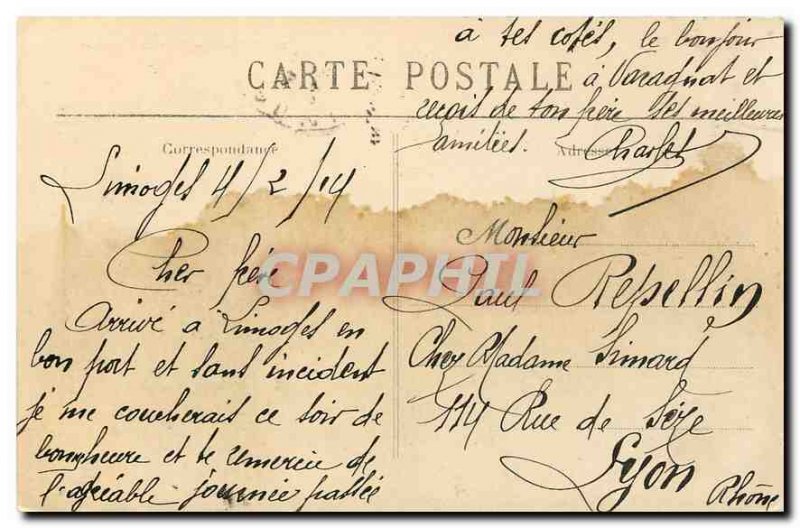 à tes cotés, le bonjour
à Varagnat et
CARTE POSTALE
reçois de ton frère ses meilleures
amitiés.
Correspondance
Adresse
Limoges 4/2/14
Cher frère
Arrivé à Limoges en
bon port et sans incident
je me coucherais ce soir de
bonheure et te remercie de
l'agréable journée passée
Monsieur
Paul Repellin
Chez Madame Simard
114 Rue de Sèze
Lyon
Rhône
CPAPHIL